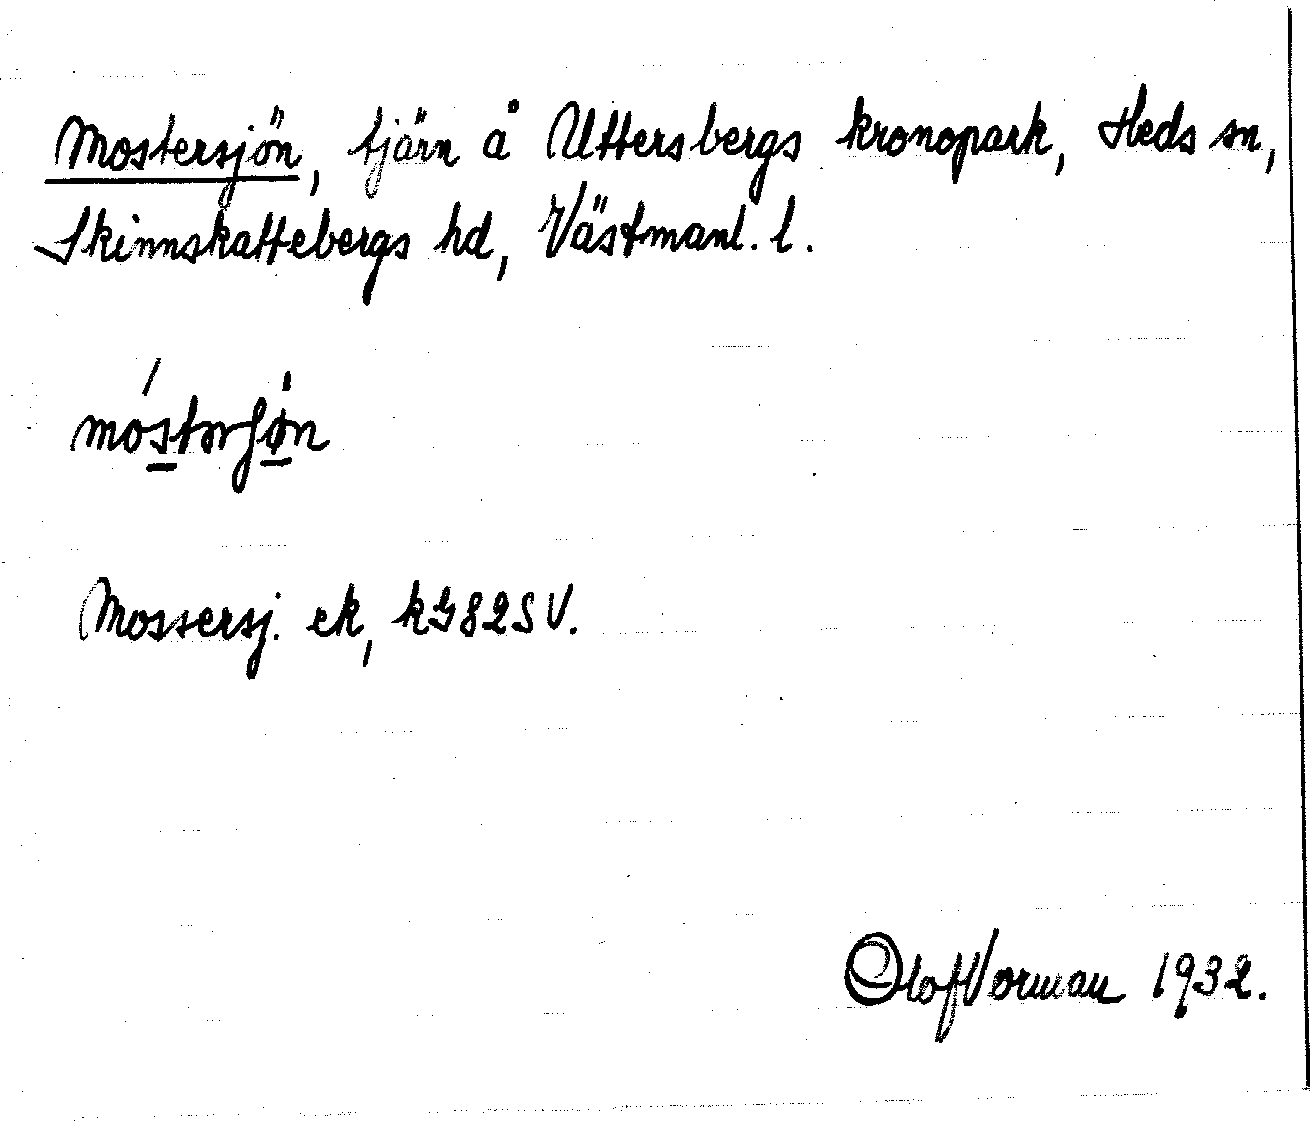 Mostersjön, tjärn å Uttersbergs kronopark, Heds sn,
Skinnskattebergs hd, Västmanl. l.
Mossersj. ek, kG82SV.
Olof Vorman 1932.